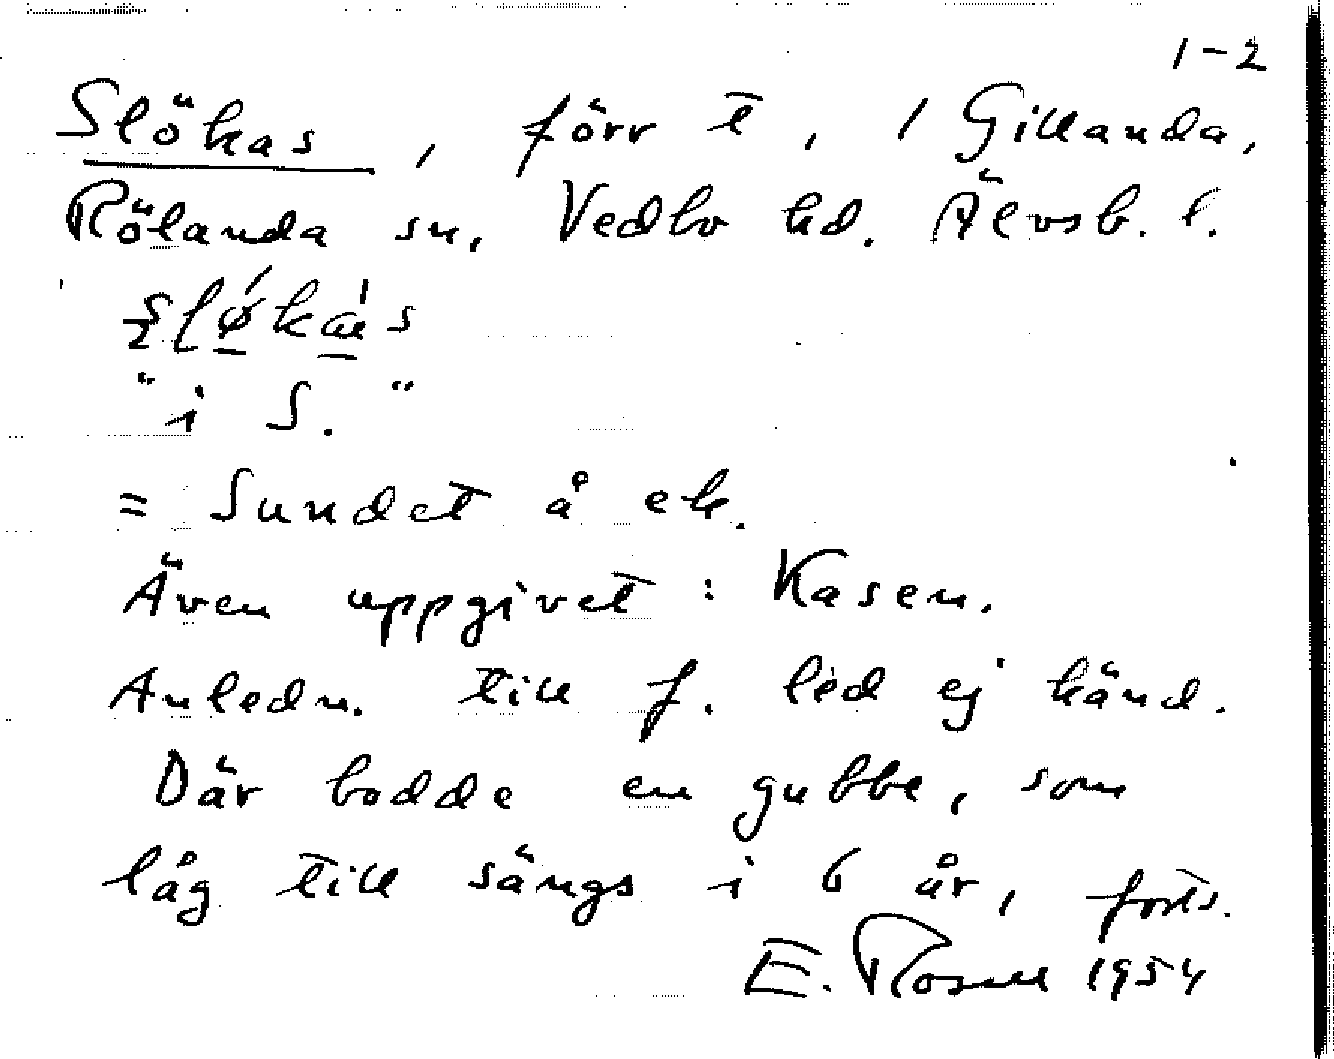 1-2
Slökas, förr t, 1 Gillanda,
Rölanda sn, Vedbo hd. Älvsb. l.
"i S."
= Sundet å ek.
Även uppgivet: Kasen.
Anledn. till f. led ej känd.
Där bodde en gubbe, som
låg till sängs i 6 år, forts.
E. Rosell 1954